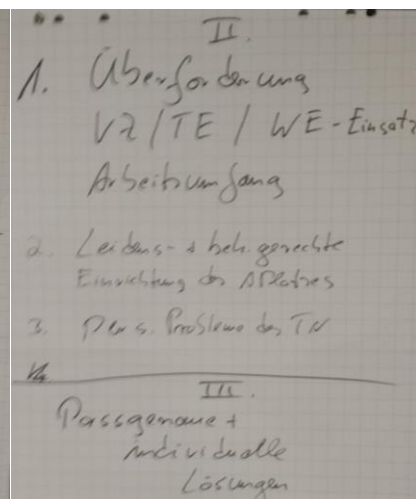 II.
1. Überforderung
VZ/TE / WE-Einsatz
Arbeitsumfang
2. Leidens- + beh. gerechte
Einrichtung des APlatzes
3. Pers. Probleme des TN
III.
Passgenaue +
individuelle
Lösungen